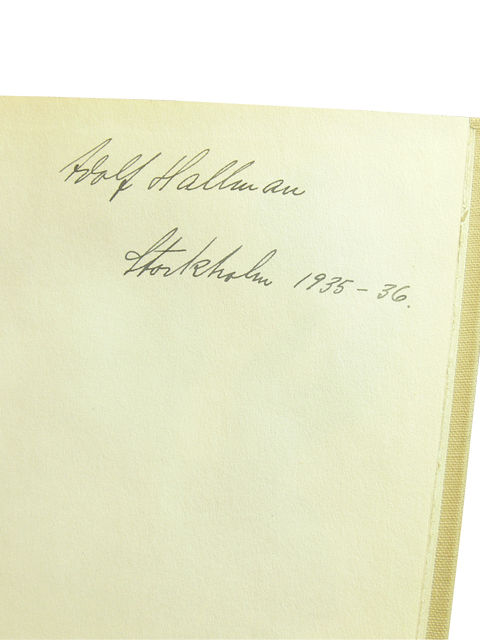 Adolf Hallman
Stockholm 1935-36.